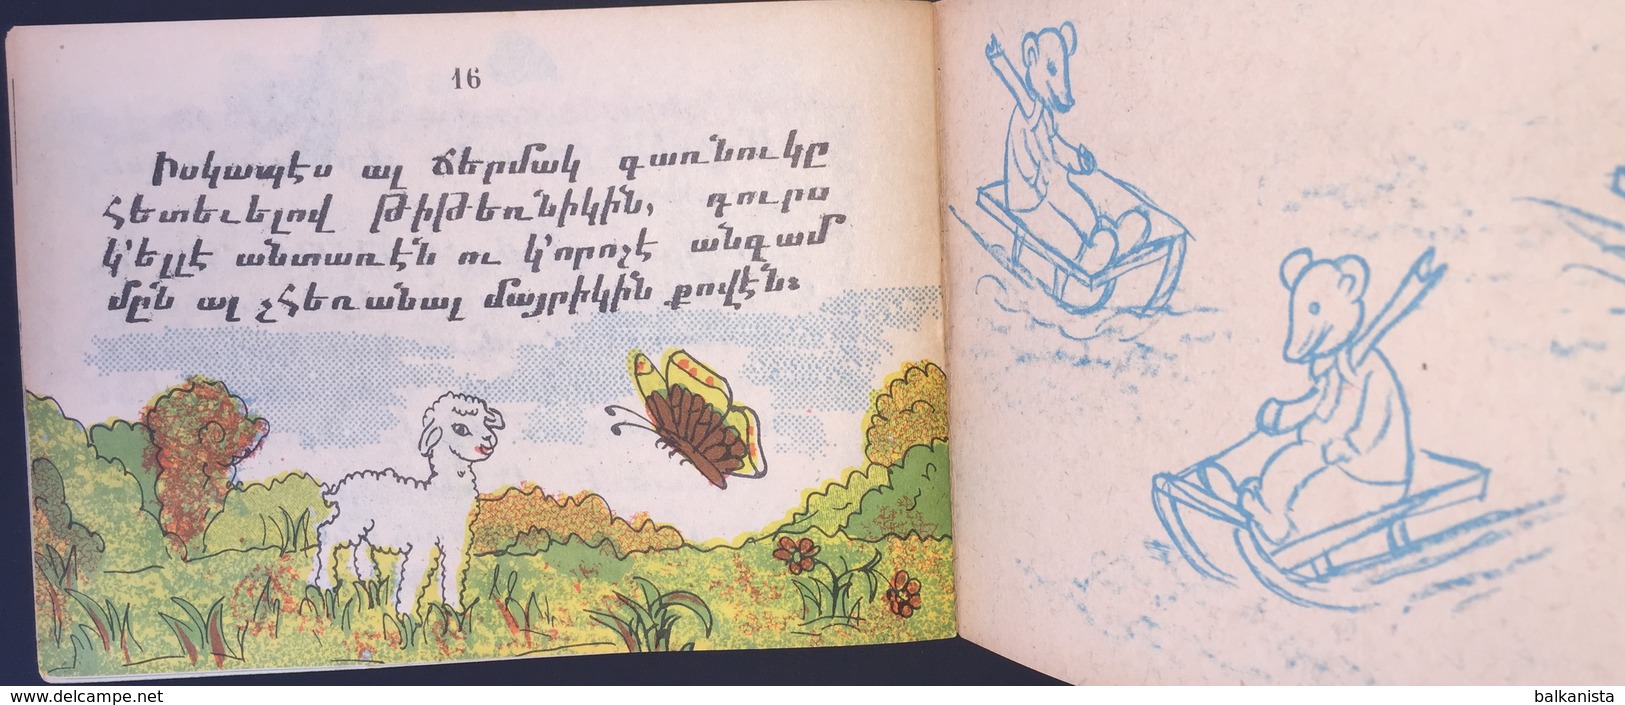 16
Իսկապէս ալ ճերմակ գառնուկը
հետեւելով թիթեռնիկին, դուրս
կ՚ելլէ անտառէն ու կ՚որոշէ անգամ
մըն ալ չհեռանալ մայրիկին քովէն։
www.delcampe.net
balkanista